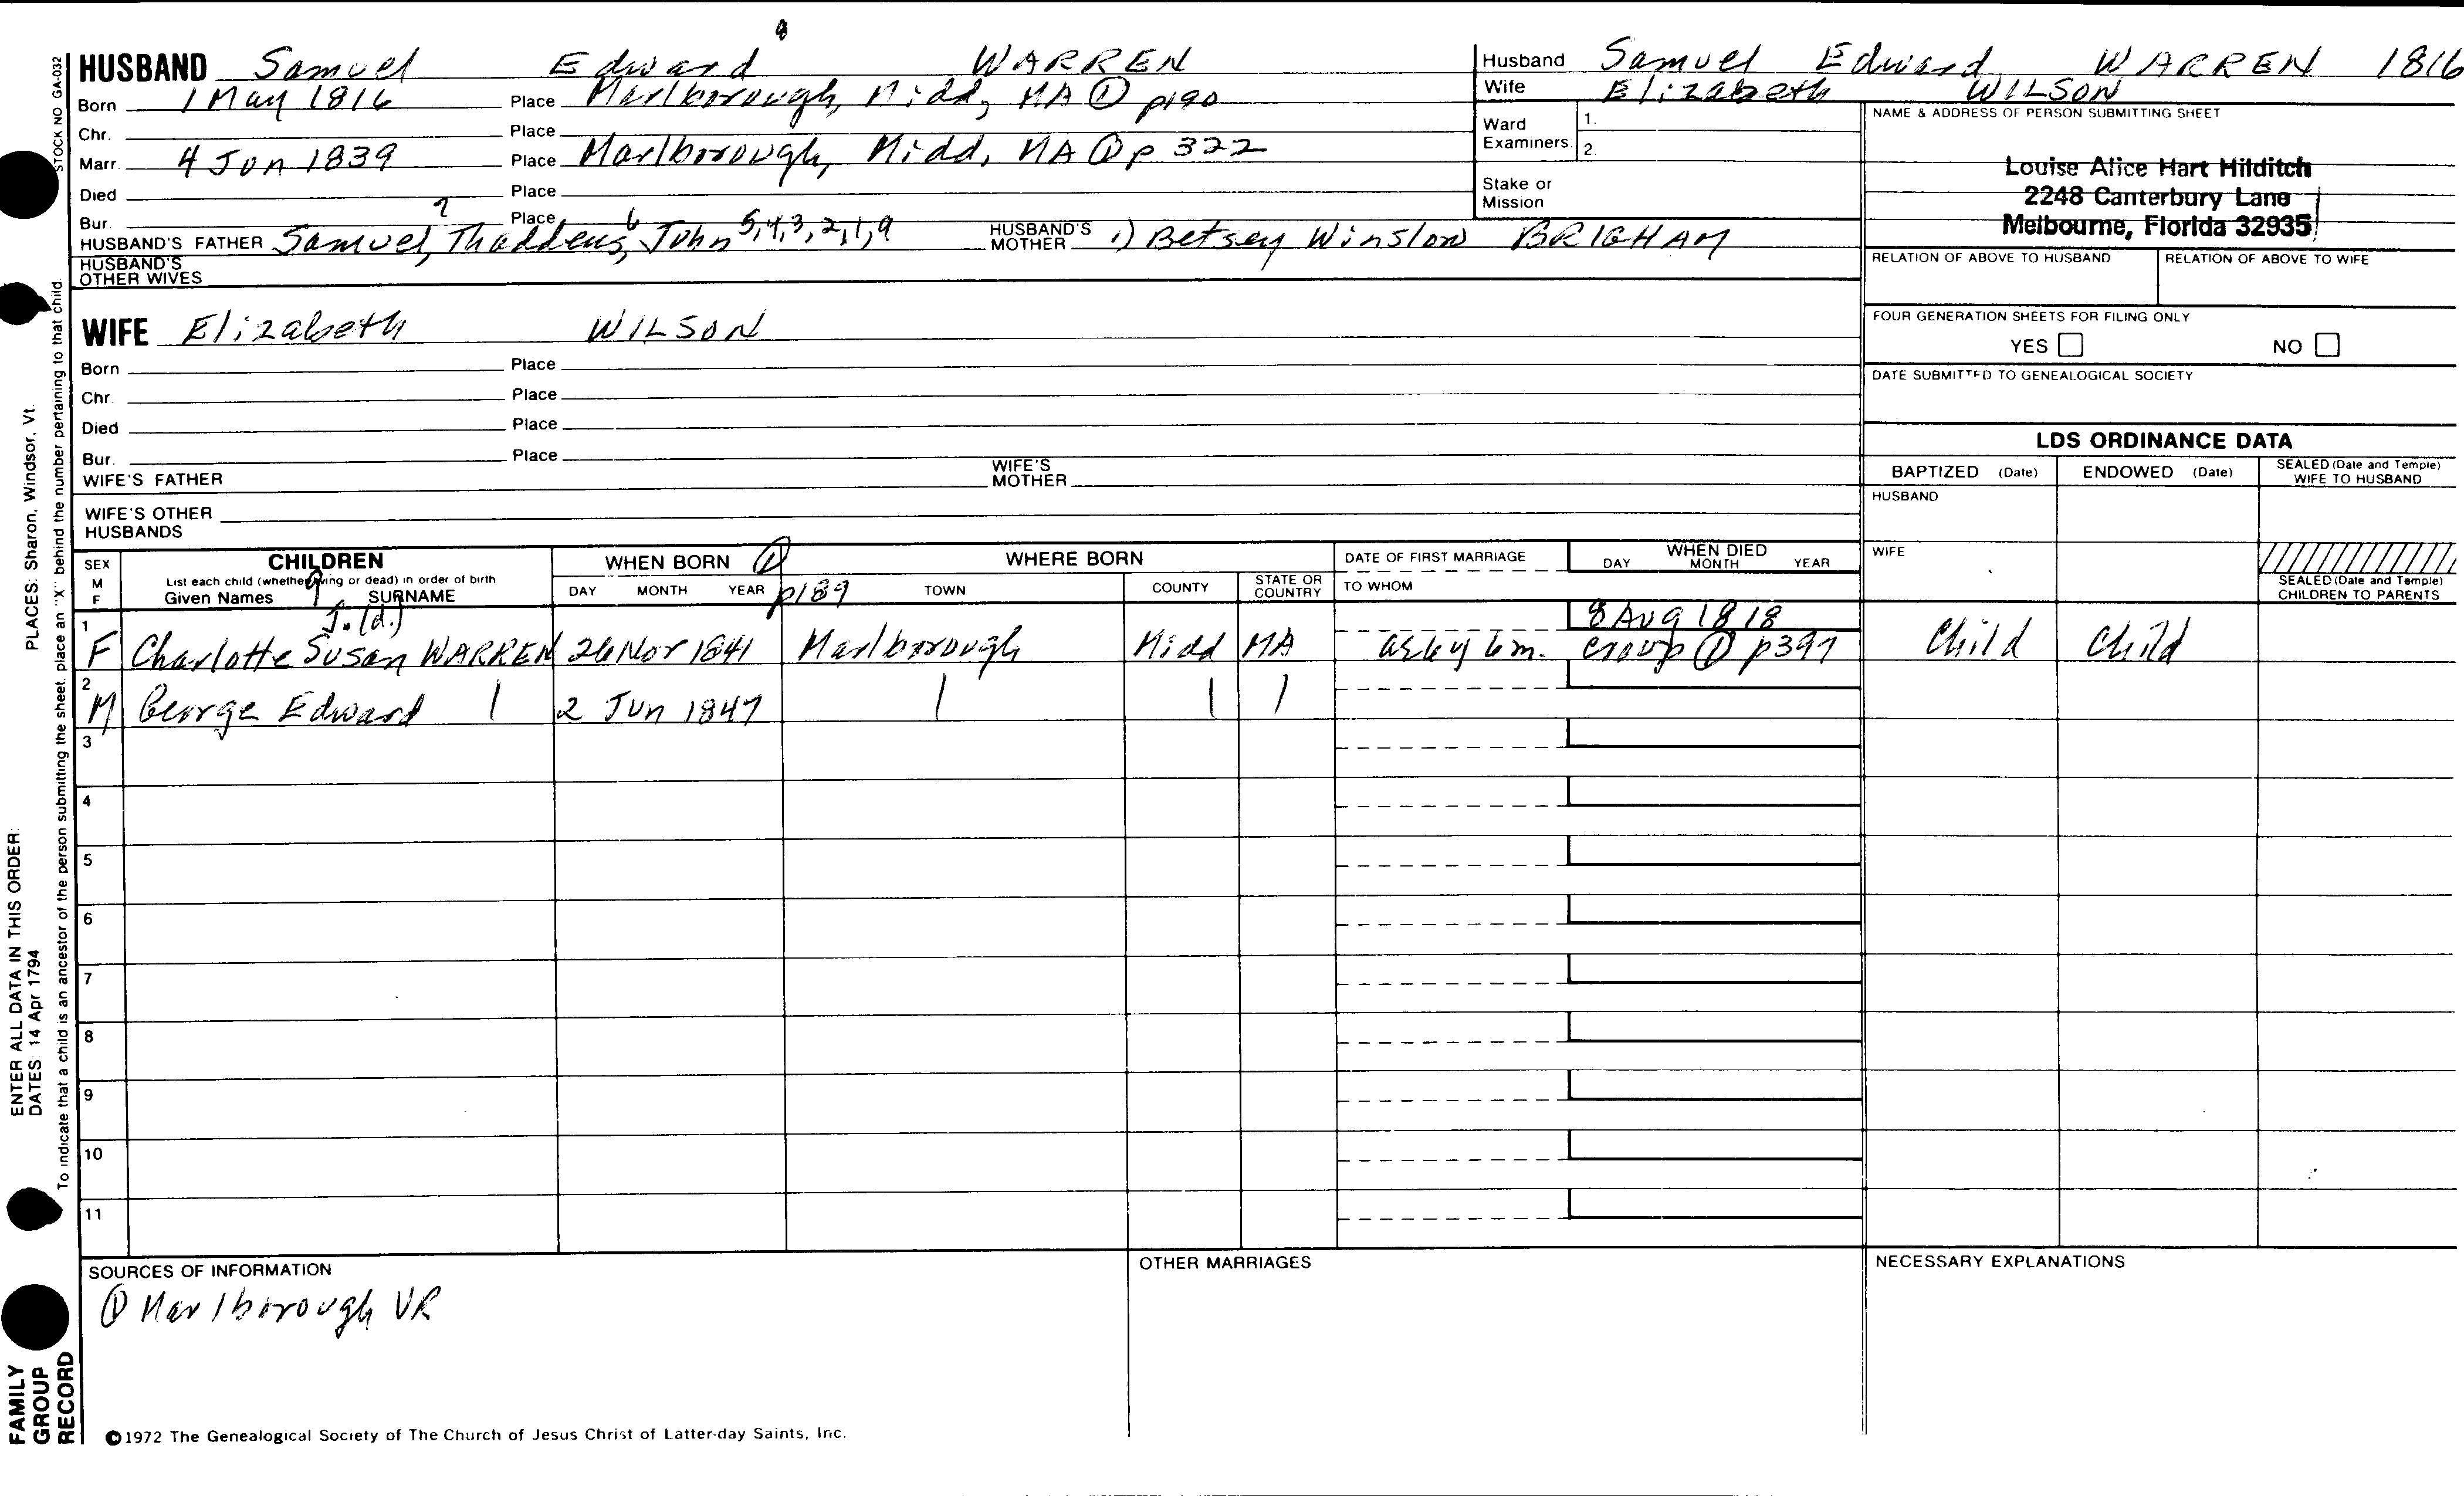 8
HUSBAND Samuel Edward WARREN
Born 1 May 1816 Place Marlborough, Midd, MA ① p190
Chr. Place
Marr. 4 Jun 1839 Place Marlborough, Midd, MA ① p 322
Died Place
Bur. Place
HUSBAND'S FATHER Samuel,7 Thaddeus,6 John 5,4,3,2,1,9 HUSBAND'S MOTHER 1) Betsey Winslow BRIGHAM
HUSBAND'S OTHER WIVES
WIFE Elizabeth WILSON
Born Place
Chr. Place
Died Place
Bur. Place
WIFE'S FATHER WIFE'S MOTHER
WIFE'S OTHER HUSBANDS
Husband Samuel Edward WARREN 1816
Wife Elizabeth WILSON
Ward Examiners: 1.
2.
Stake or Mission
NAME & ADDRESS OF PERSON SUBMITTING SHEET
Louise Alice Hart Hilditch
2248 Canterbury Lane
Melbourne, Florida 32935
RELATION OF ABOVE TO HUSBAND RELATION OF ABOVE TO WIFE
FOUR GENERATION SHEETS FOR FILING ONLY
YES NO
DATE SUBMITTED TO GENEALOGICAL SOCIETY
LDS ORDINANCE DATA
BAPTIZED (Date) ENDOWED (Date) SEALED (Date and Temple) WIFE TO HUSBAND
HUSBAND
WIFE
SEALED (Date and Temple) CHILDREN TO PARENTS
SEX M F
CHILDREN
List each child (whether living or dead) in order of birth
Given Names 9 SURNAME
WHEN BORN ①
DAY MONTH YEAR p189
WHERE BORN
TOWN COUNTY STATE OR COUNTRY
DATE OF FIRST MARRIAGE
TO WHOM
WHEN DIED
DAY MONTH YEAR
J. (d.) 8 Aug 1818
1 F Charlotte Susan WARREN 26 Nov 1841 Marlborough Midd MA as 4y 6m. croup ① p397 Child Child
2 M George Edward | 2 Jun 1847 | | |
3
4
5
6
7
8
9
10
11
SOURCES OF INFORMATION
① Marlborough VR
OTHER MARRIAGES
NECESSARY EXPLANATIONS
©1972 The Genealogical Society of The Church of Jesus Christ of Latter-day Saints, Inc.
STOCK NO GA-032
To indicate that a child is an ancestor of the person submitting the sheet, place an "X" behind the number pertaining to that child.
ENTER ALL DATA IN THIS ORDER:
DATES: 14 Apr 1794
PLACES: Sharon, Windsor, Vt.
FAMILY GROUP RECORD